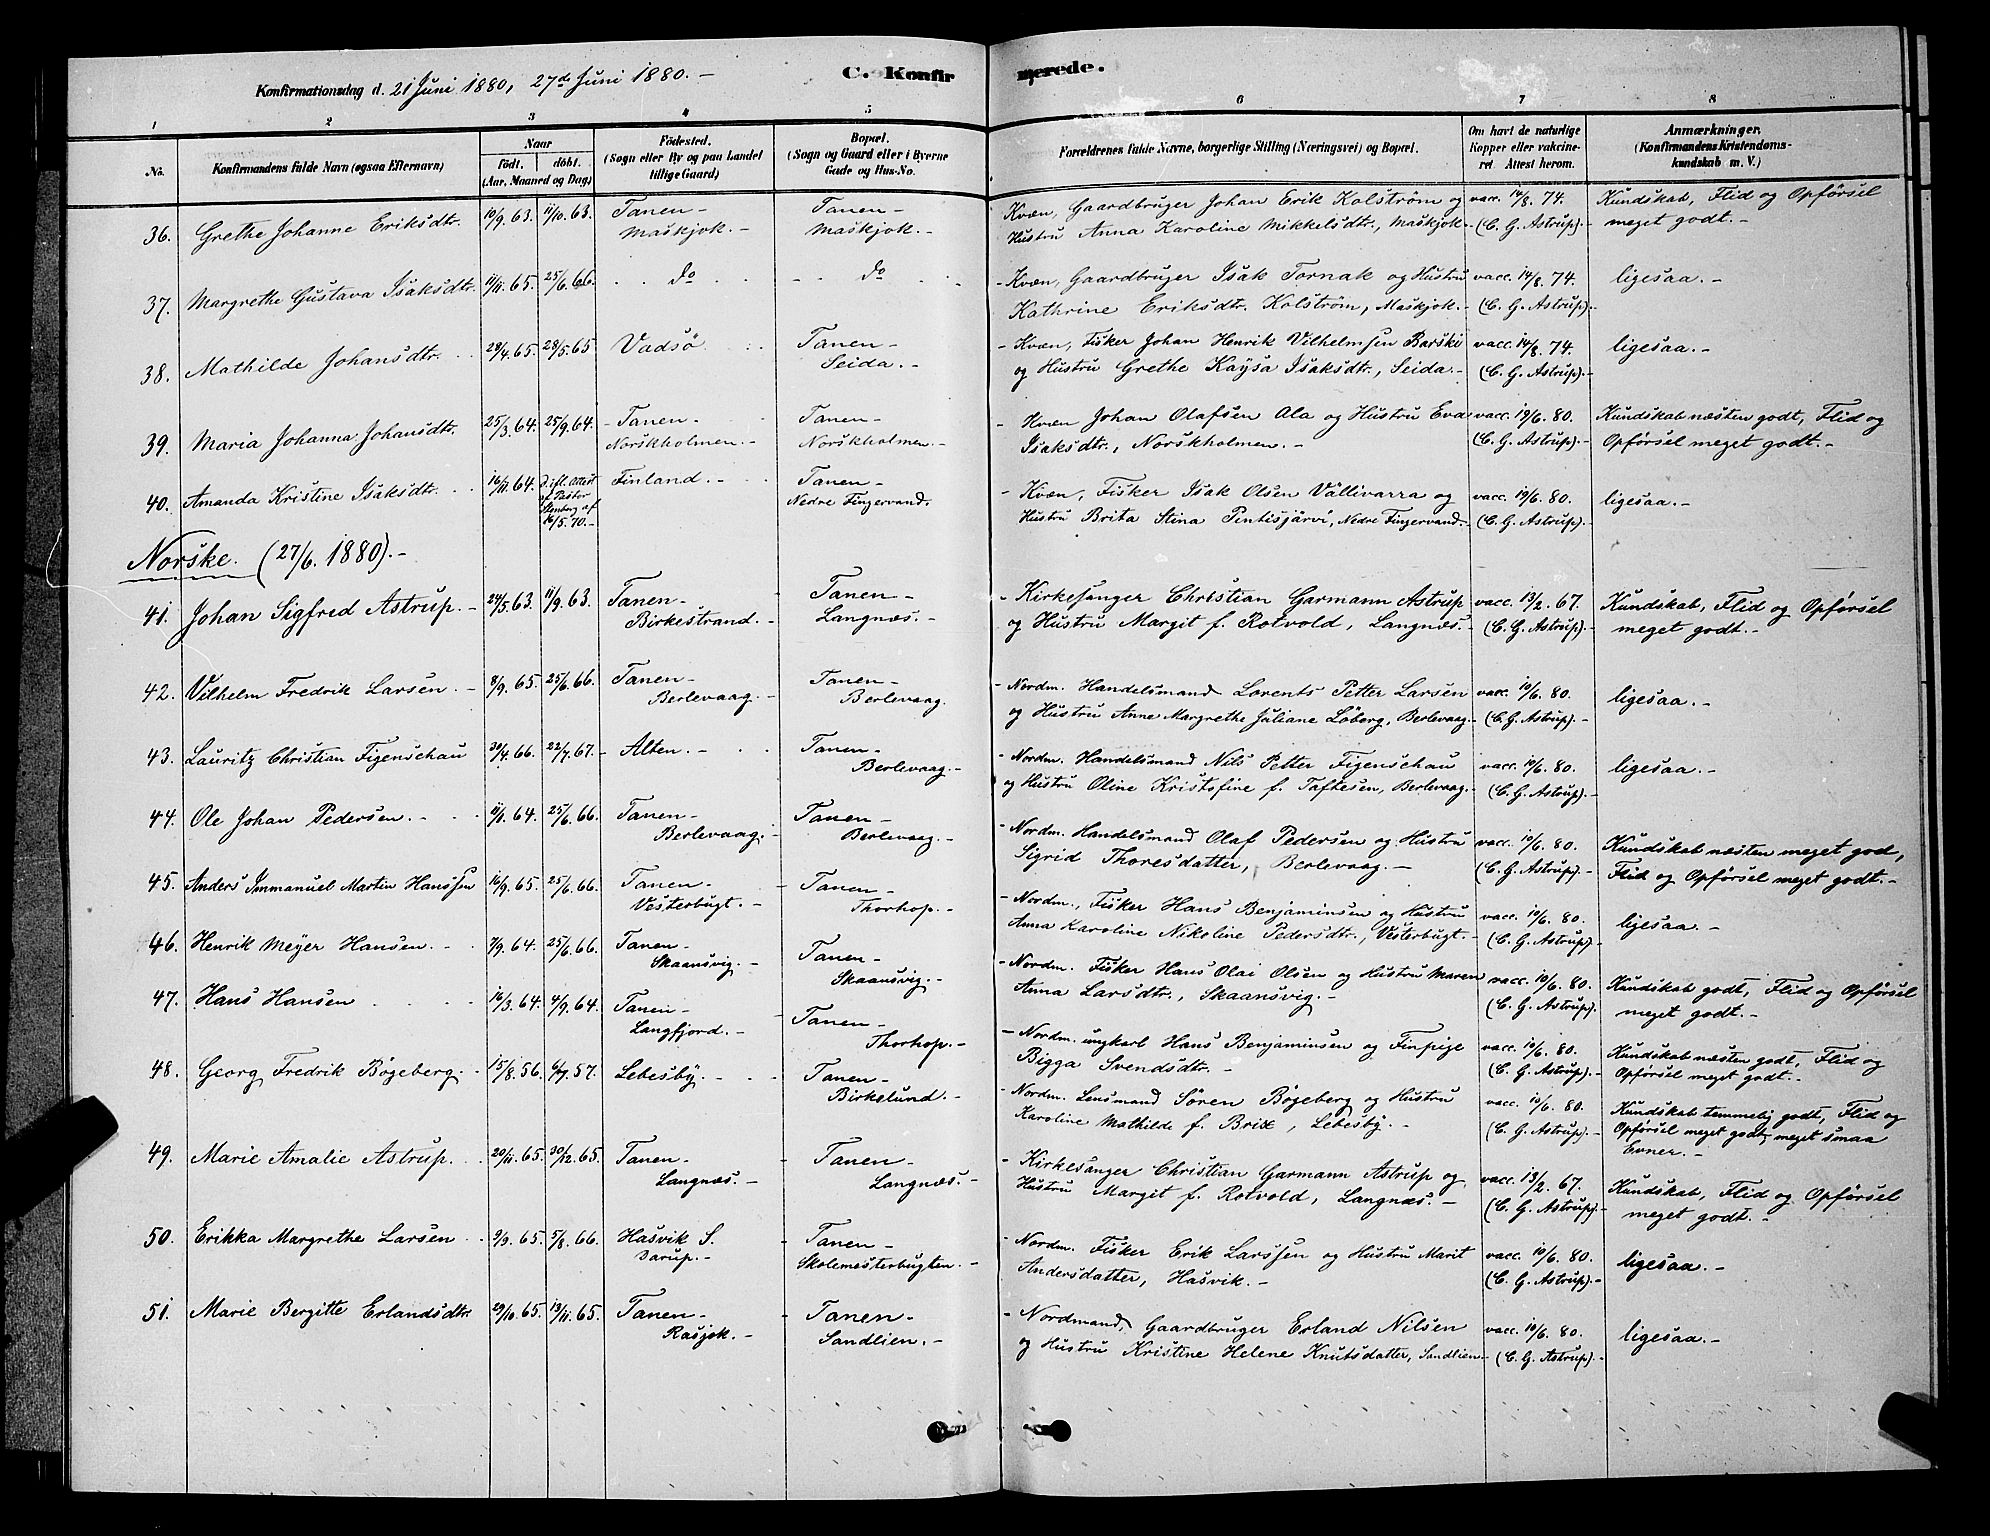 Konfirmationsdag d. 21 Juni 1880, 27de Juni 1880. -
C. Konfirmerede.
1 2 3 4 5 6 7 8
No.
Konfirmandens fulde Navn (ogsaa Efternavn)
Naar
født. døbt.
(Aar, Maaned og Dag)
Fødested.
(Sogn eller By og paa Landet
tillige Gaard)
Bopæl.
(Sogn og Gaard eller i Byerne
Gade og Hus-No.
Forældrenes fulde Navne, borgerlige Stilling (Næringsvei) og Bopæl.
Om havt de naturlige
Kopper eller vakcine-
ret. Attest herom.
Anmærkninger.
(Konfirmandens Kristendoms-
kundskab m. V.)
36. Grethe Johanne Eriksdtr. 10/9.63. 11/10.63. Tanen- Tanen- Kvæn, Gaardbruger Johan Erik Kolström og vacc. 14/8.74. Kundskab, Flid og Opførsel
Maskjok.- Maskjok.- Hustru Anna Karoline Mikkelsdtr., Maskjok.- (C. G. Astrup).- meget godt.-
37. Margrethe Gustava Isaksdtr. 11/11.65. 25/6.66. do do - Kvæn, Gaardbruger Isak Tornak og Hustru vacc. 14/8.74. ligesaa.-
Kathrine Eriksdtr. Kolström, Maskjok.- (C. G. Astrup).-
38. Mathilde Johansdtr. 28/4.65. 28/5.65 Vadsö Tanen- - Kvæn, Fisker Johan Henrik Vilhelmsen Barski vacc. 14/8.74. ligesaa.-
Seida.- og Hustru Grethe Kaysa Isaksdtr., Seida.- (C. G. Astrup).-
39. Maria Johanna Johansdtr. 25/3.64. 25/9.64. - Tanen- Tanen- - Kvæn Johan Olafsen Ala og Hustru Eva vacc. 19/6.80. Kundskab næsten godt, Flid og
Norskholmen.- Norskholmen.- Isaksdtr., Norskholmen.- (C. G. Astrup).- Opførsel meget godt.-
40. Amanda Kristine Isaksdtr. 16/11.64. D. ifl. Attest Finland.- Tanen- - Kvæn, Fisker Isak Olsen Vällivarra og vacc. 19/6.80. ligesaa.-
af Pastor
Stenberg af
16/5.70.- Nedre Fingervand. Hustru Brita Stina Pentisjärvi, Nedre Fingervand.- (C. G. Astrup).-
Norske. (27/6.1880).-
41. Johan Sigfred Astrup.- 24/5.63. 11/9.63. Tanen- Tanen- - Kirkesanger Christian Garmann Astrup vacc. 13/2.67. Kundskab, Flid og Opførsel
Birkestrand.- Langnæs.- og Hustru Margit f. Rotvold, Langnæs.- (C. G. Astrup).- meget godt.-
42. Vilhelm Fredrik Larsen.- 8/9.65. 25/6.66. Tanen- Tanen- - Nordm. Handelsmand Lorents Petter Larsen vacc. 10/6.80. ligesaa.-
Berlevaag.- Berlevaag. og Hustru Anne Margrethe Juliane Löberg, Berlevaag.- (C. G. Astrup).-
43. Lauritz Christian Figenschau 30/4.66. 22/7.67.- Alten.- Tanen- - Nordm. Handelsmand Nils Petter Figenschau vacc. 10/6.80. ligesaa.-
Berlevaag.- og Hustru Oline Kristofine f. Taftesen, Berlevaag.- (C. G. Astrup).-
44. Ole Johan Pedersen.- 11/1.64. 25/6.66. Tanen- Tanen- - Nordm. Handelsmand Olaf Pedersen og Hustru vacc. 10/6.80. Kundskab næsten meget god,
Berlevaag.- Berlevaag.- Sigrid Thoresdatter, Berlevaag.- (C. G. Astrup).- Flid og Opførsel meget godt.-
45. Anders Immanuel Martin Hanssen 16/9.65. 25/6.66. Tanen- Tanen- - Nordm., Fisker Hans Benjaminsen og Hustru vacc. 10/6.80. ligesaa.-
Vesterbugt.- Thorhop.- Anna Karoline Nikoline Pedersdtr., Vesterbugt.- (C. G. Astrup).-
46. Henrik Meyer Hansen.- 7/9.64. 25/6.66. Tanen- Tanen- - Nordm. Fisker Hans Olai Olsen og Hustru Maren vacc. 10/6.80. Kundskab godt, Flid og Opførsel
Skaansvig.- Skaansvig.- Anna Larsdtr., Skaansvig.- (C. G. Astrup). meget godt.-
47. Hans Hansen 16/3.64. 4/9.64. Tanen- Tanen- - Nordm. ungkarl Hans Benjaminsen og Finpige vacc. 10/6.80. Kundskab næsten godt, Flid og
Langfjord.- Thorhop.- Bigga Svendsdtr.- (C. G. Astrup).- Opførsel meget godt.-
48. Georg Fredrik Bøgeberg.- 15/8.56. 6/7.57. Lebesby.- Tanen- - Nordm. Lensmand Søren Bøgeberg og Hustru vacc. 10/6.80. Kundskab temmelig godt, Flid og
Birkelund.- Karoline Mathilde f. Brix, Lebesby.- (C. G. Astrup).- Opførsel meget godt, meget smaa
Evner.-
49. Marie Amalie Astrup. 20/11.65. 30/12.65. Tanen- Tanen- - Kirkesanger Christian Garmann Astrup og vacc. 13/2.67. Kundskab, Flid og Opførsel
Langnæs.- Langnæs.- Hustru Margit f. Rotvold, Langnæs.- (C. G. Astrup).- meget godt.-
50. Erikka Margrethe Larsen 9/9.65. 5/8.66. Hasvik S. Tanen- - Nordm. Fisker Erik Larssen og Hustru Marit vacc. 10/6.80. ligesaa.-
Skolemesterbugten.- Andersdatter, Hasvik.- (C. G. Astrup).-
51. Marie Bergitte Erlandsdtr. 29/10.65. 13/11.65. Tanen- Tanen- - Nordmand, Gaardbruger Erland Nilsen vacc. 10/6.80. ligesaa.-
Rasjok.- Sandlien.- og Hustru Kristine Helene Knutsdatter, Sandlien.- (C. G. Astrup).-